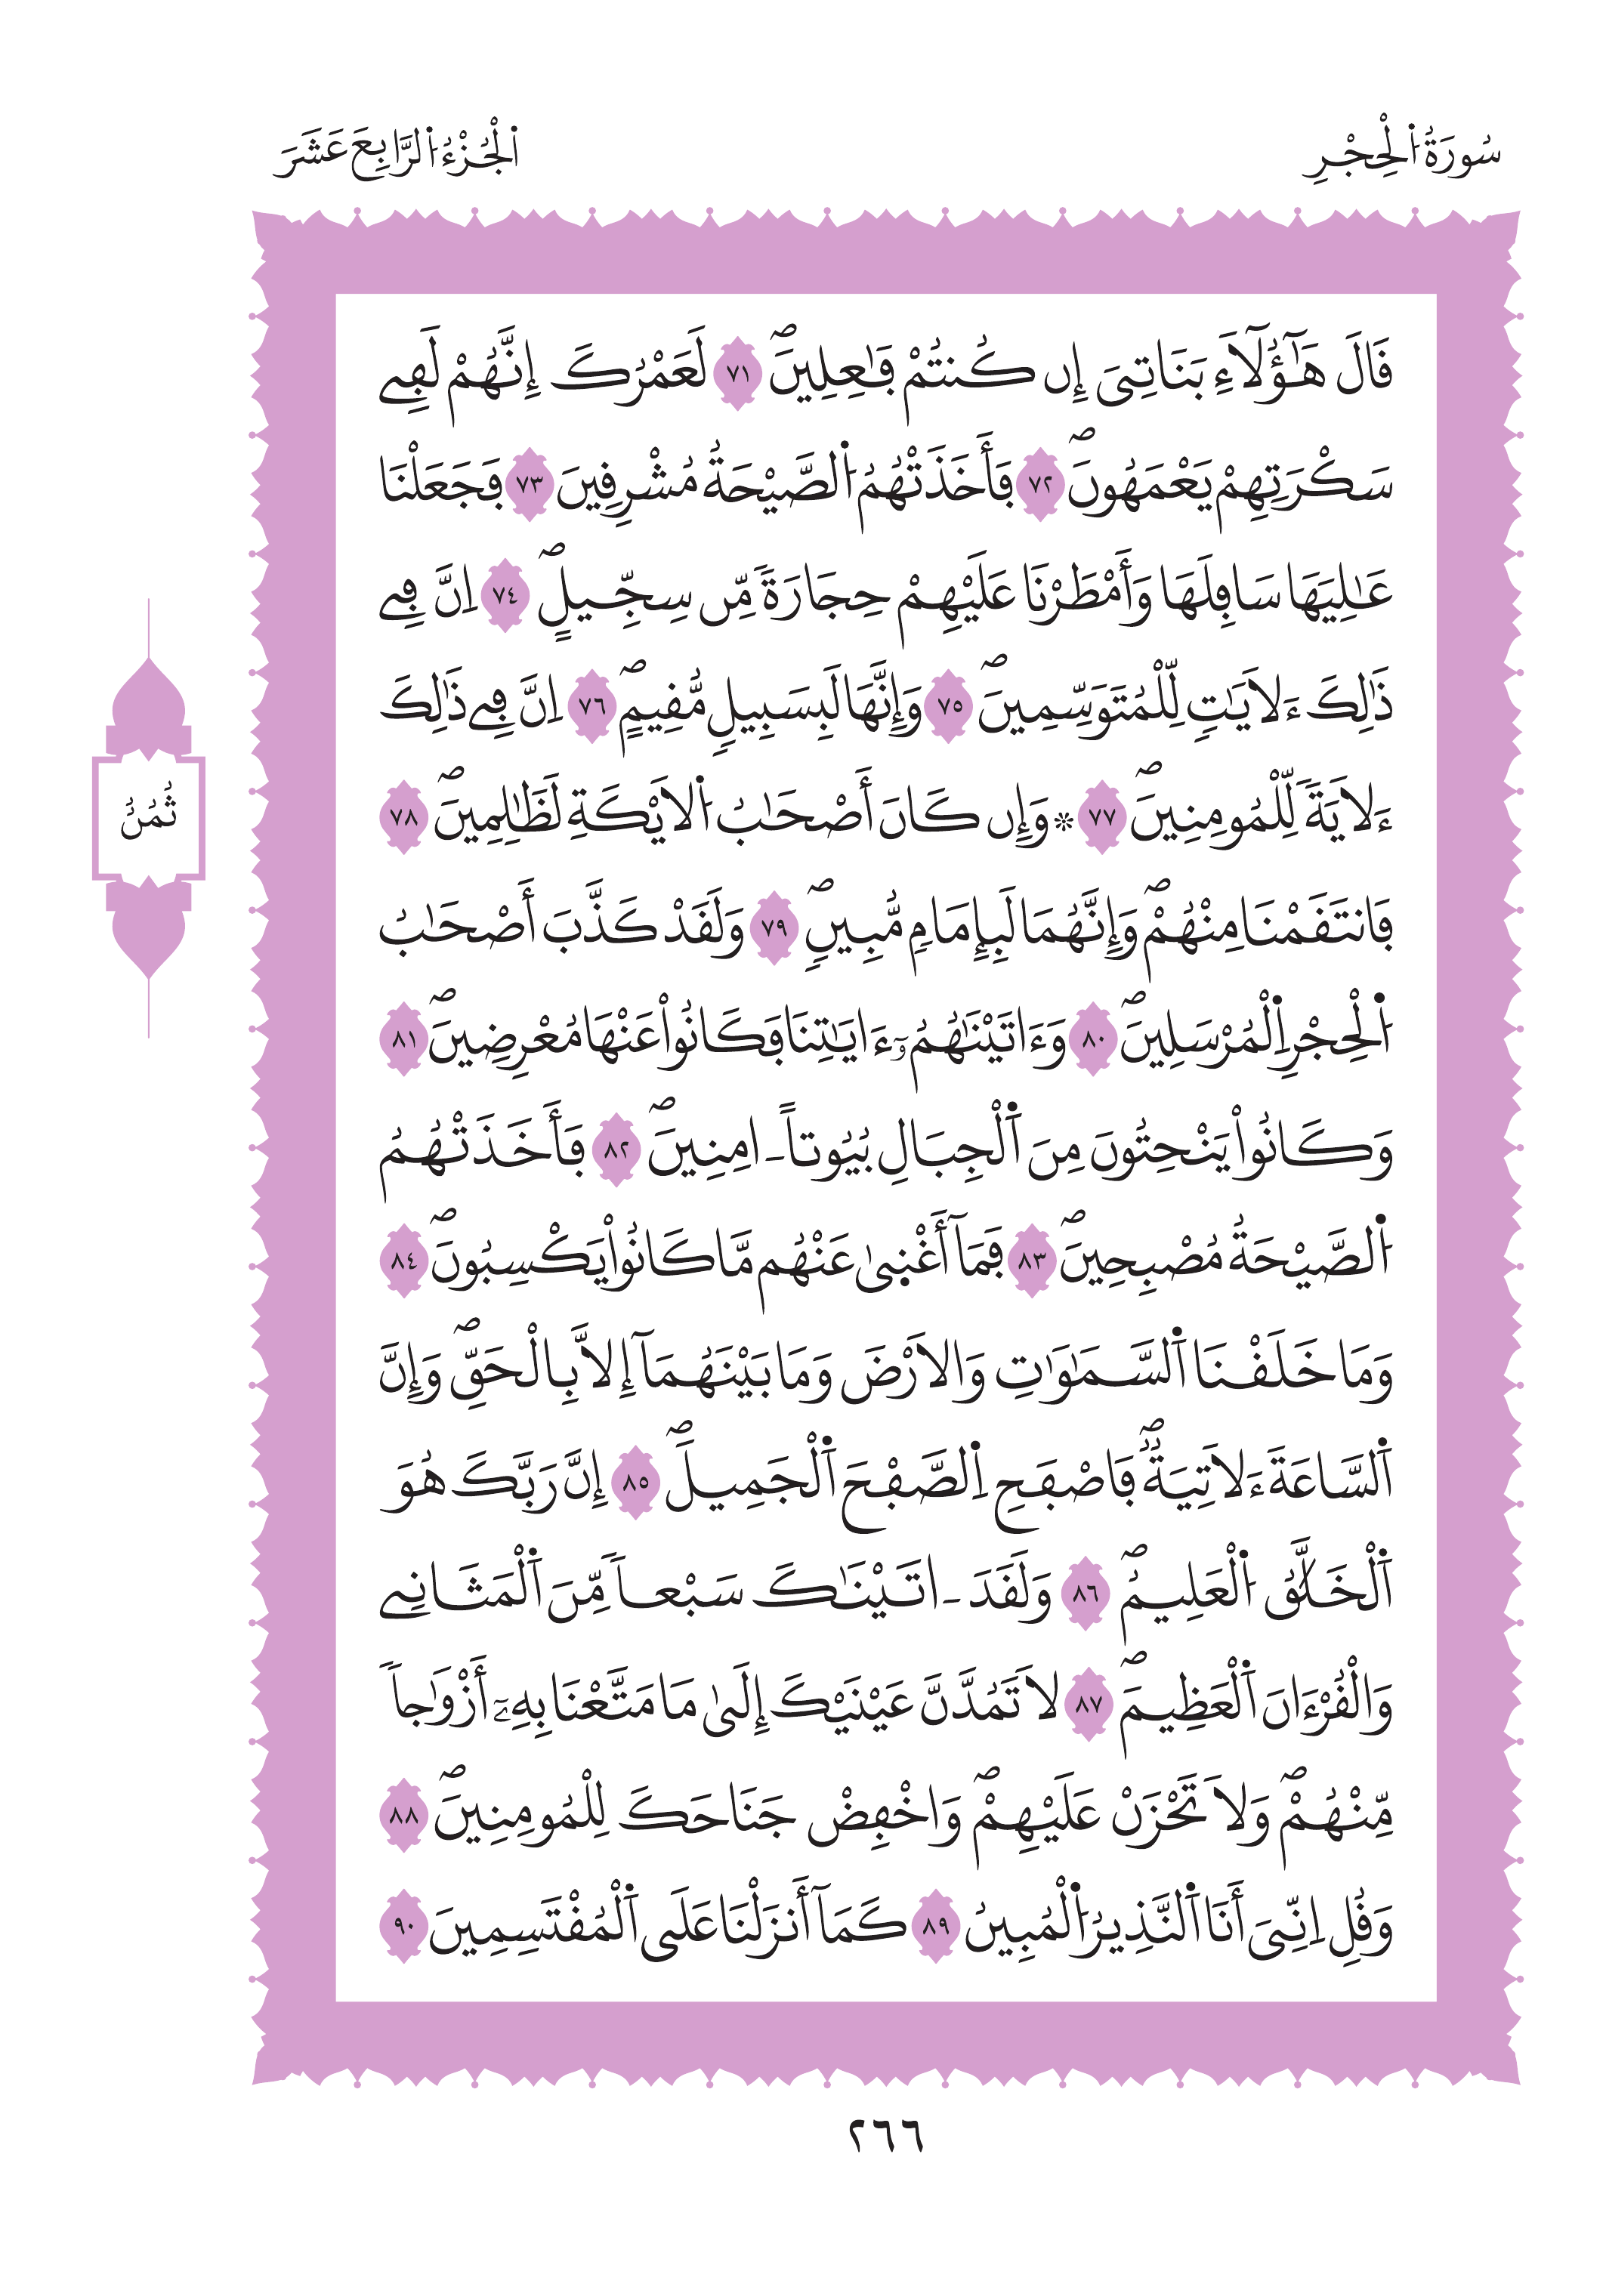 سُورَةُ اُ۬لْحِجْرِ
اَ۬لْجُزْءُ اُ۬لرَّابِعَ عَشَرَ
قَالَ هَٰٓؤُلَآءِ بَنَاتِيَ إِن كُنتُمْ فَٰعِلِينَۖ ٧١ لَعَمْرُكَ إِنَّهُمْ لَفِے
سَكْرَتِهِمْ يَعْمَهُونَۖ ٧٢ فَأَخَذَتْهُمُ اُ۬لصَّيْحَةُ مُشْرِفِينَ ٧٣ فَجَعَلْنَا
عَٰلِيَهَا سَافِلَهَا وَأَمْطَرْنَا عَلَيْهِمْ حِجَارَةٗ مِّن سِجِّيلٍۖ ٧٤ اِنَّ فِے
ذَٰلِكَ ءَلَايَٰتٖ لِّلْمُتَوَسِّمِينَۖ ٧٥ وَإِنَّهَا لَبِسَبِيلٖ مُّقِيمٍۖ ٧٦ اِنَّ فِے ذَٰلِكَ
ءَلَايَةٗ لِّلْمُومِنِينَۖ ٧٧ ۞ وَإِن كَانَ أَصْحَٰبُ اُ۬لَايْكَةِ لَظَٰلِمِينَۖ ٧٨
فَانتَقَمْنَا مِنْهُمْۖ وَإِنَّهُمَا لَبِإِمَامٖ مُّبِينٖۖ ٧٩ وَلَقَدْ كَذَّبَ أَصْحَٰبُ
اُ۬لْحِجْرِ اِ۬لْمُرْسَلِينَۖ ٨٠ وَءَاتَيْنَٰهُمُۥٓ ءَايَٰتِنَا فَكَانُواْ عَنْهَا مُعْرِضِينَۖ ٨١
وَكَانُواْ يَنْحِتُونَ مِنَ اَ۬لْجِبَالِ بُيُوتاً ـ امِنِينَۖ ٨٢ فَأَخَذَتْهُمُ
اُ۬لصَّيْحَةُ مُصْبِحِينَۖ ٨٣ فَمَآ أَغْن۪يٰ عَنْهُم مَّا كَانُواْ يَكْسِبُونَۖ ٨٤
وَمَا خَلَقْنَا اَ۬لسَّمَٰوَٰتِ وَالَارْضَ وَمَا بَيْنَهُمَآ إِلَّا بِالْحَقِّۖ وَإِنَّ
اَ۬لسَّاعَةَ ءَلَاتِيَةٞۖ فَاصْفَحِ اِ۬لصَّفْحَ اَ۬لْجَمِيلَۖ ٨٥ إِنَّ رَبَّكَ هُوَ
اَ۬لْخَلَّٰقُ اُ۬لْعَلِيمُۖ ٨٦ وَلَقَدَ ـ اتَيْنَٰكَ سَبْعاٗ مِّنَ اَ۬لْمَثَانِے
وَالْقُرْءَانَ اَ۬لْعَظِيمَۖ ٨٧ لَا تَمُدَّنَّ عَيْنَيْكَ إِلَىٰ مَا مَتَّعْنَا بِهِۦٓ أَزْوَٰجاٗ
مِّنْهُمْۖ وَلَا تَحْزَنْ عَلَيْهِمْۖ وَاخْفِضْ جَنَاحَكَ لِلْمُومِنِينَۖ ٨٨
وَقُلِ اِنِّيَ أَنَا اَ۬لنَّذِيرُ اُ۬لْمُبِينُ ٨٩ كَمَآ أَنزَلْنَا عَلَى اَ۬لْمُقْتَسِمِينَ ٩٠
ثُمُنُ
٢٦٦